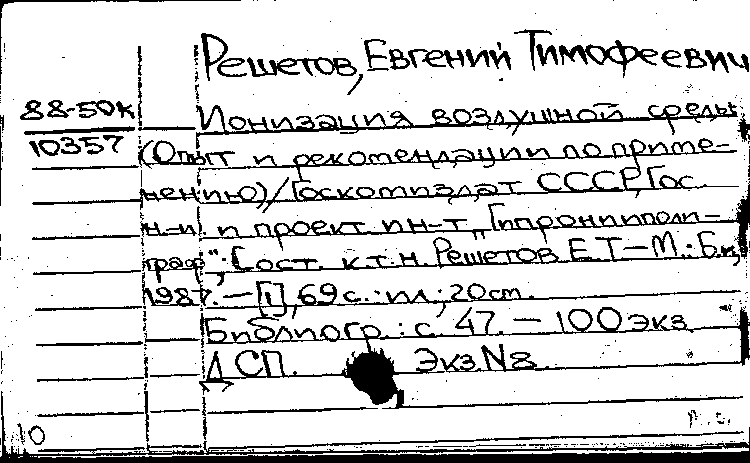 Решетов, Евгений Тимофеевич
88-50к
10357
Ионизация воздушной среды
(Опыт и рекомендации по приме-
нению)/Госкомиздат СССР, Гос.
н.-и. и проект. ин-т „Гипрониполи-
граф"; Сост. к.т.н. Решетов Е.Т.—М.: Б.и.,
1987.—[1], 69 с.: ил.; 20 см.
Библиогр.: с. 47. — 100 экз.
ДСП. Экз. N 8
10